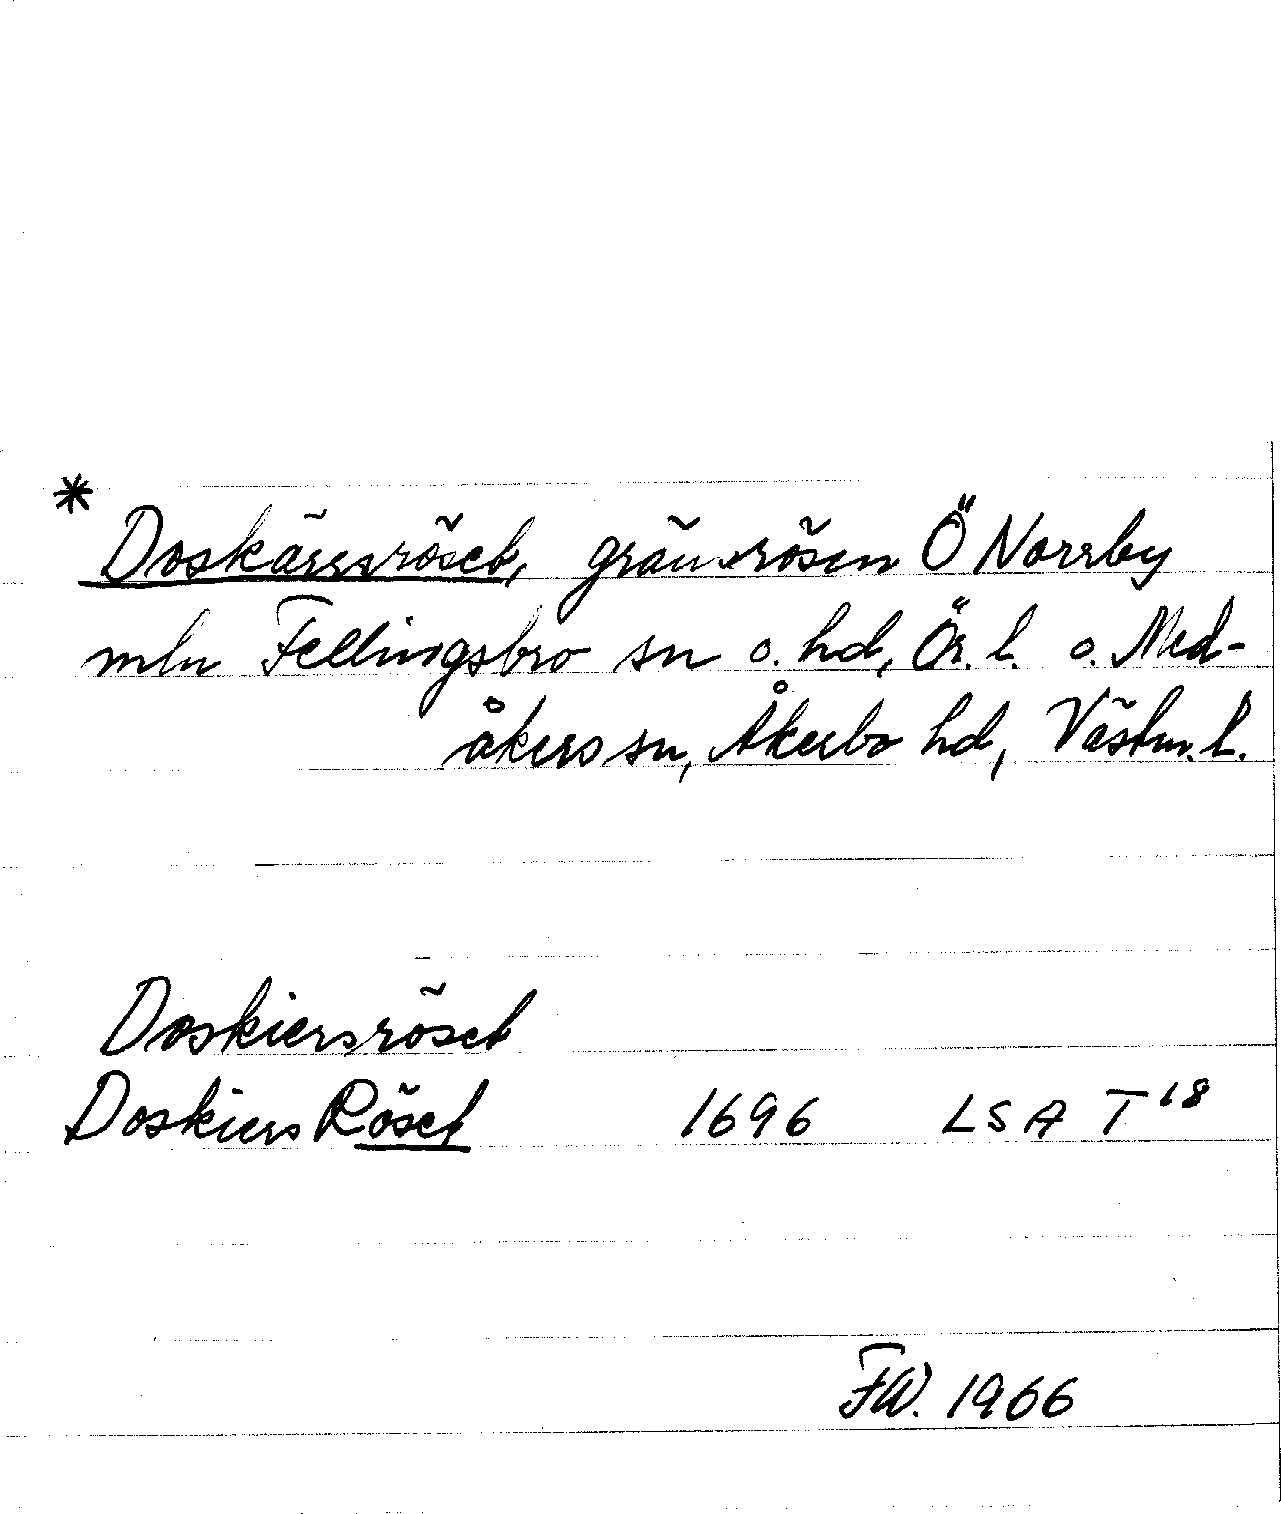 *
Doskärrsröset, gränsrösen Ö Norrby
mln Fellingsbro sn o. hd, Ör. l. o. Med-
åkers sn, Åkerbo hd, Västm. l.
Doskiersröset
Doskiers Röset 1696 LSA T18
FW. 1966